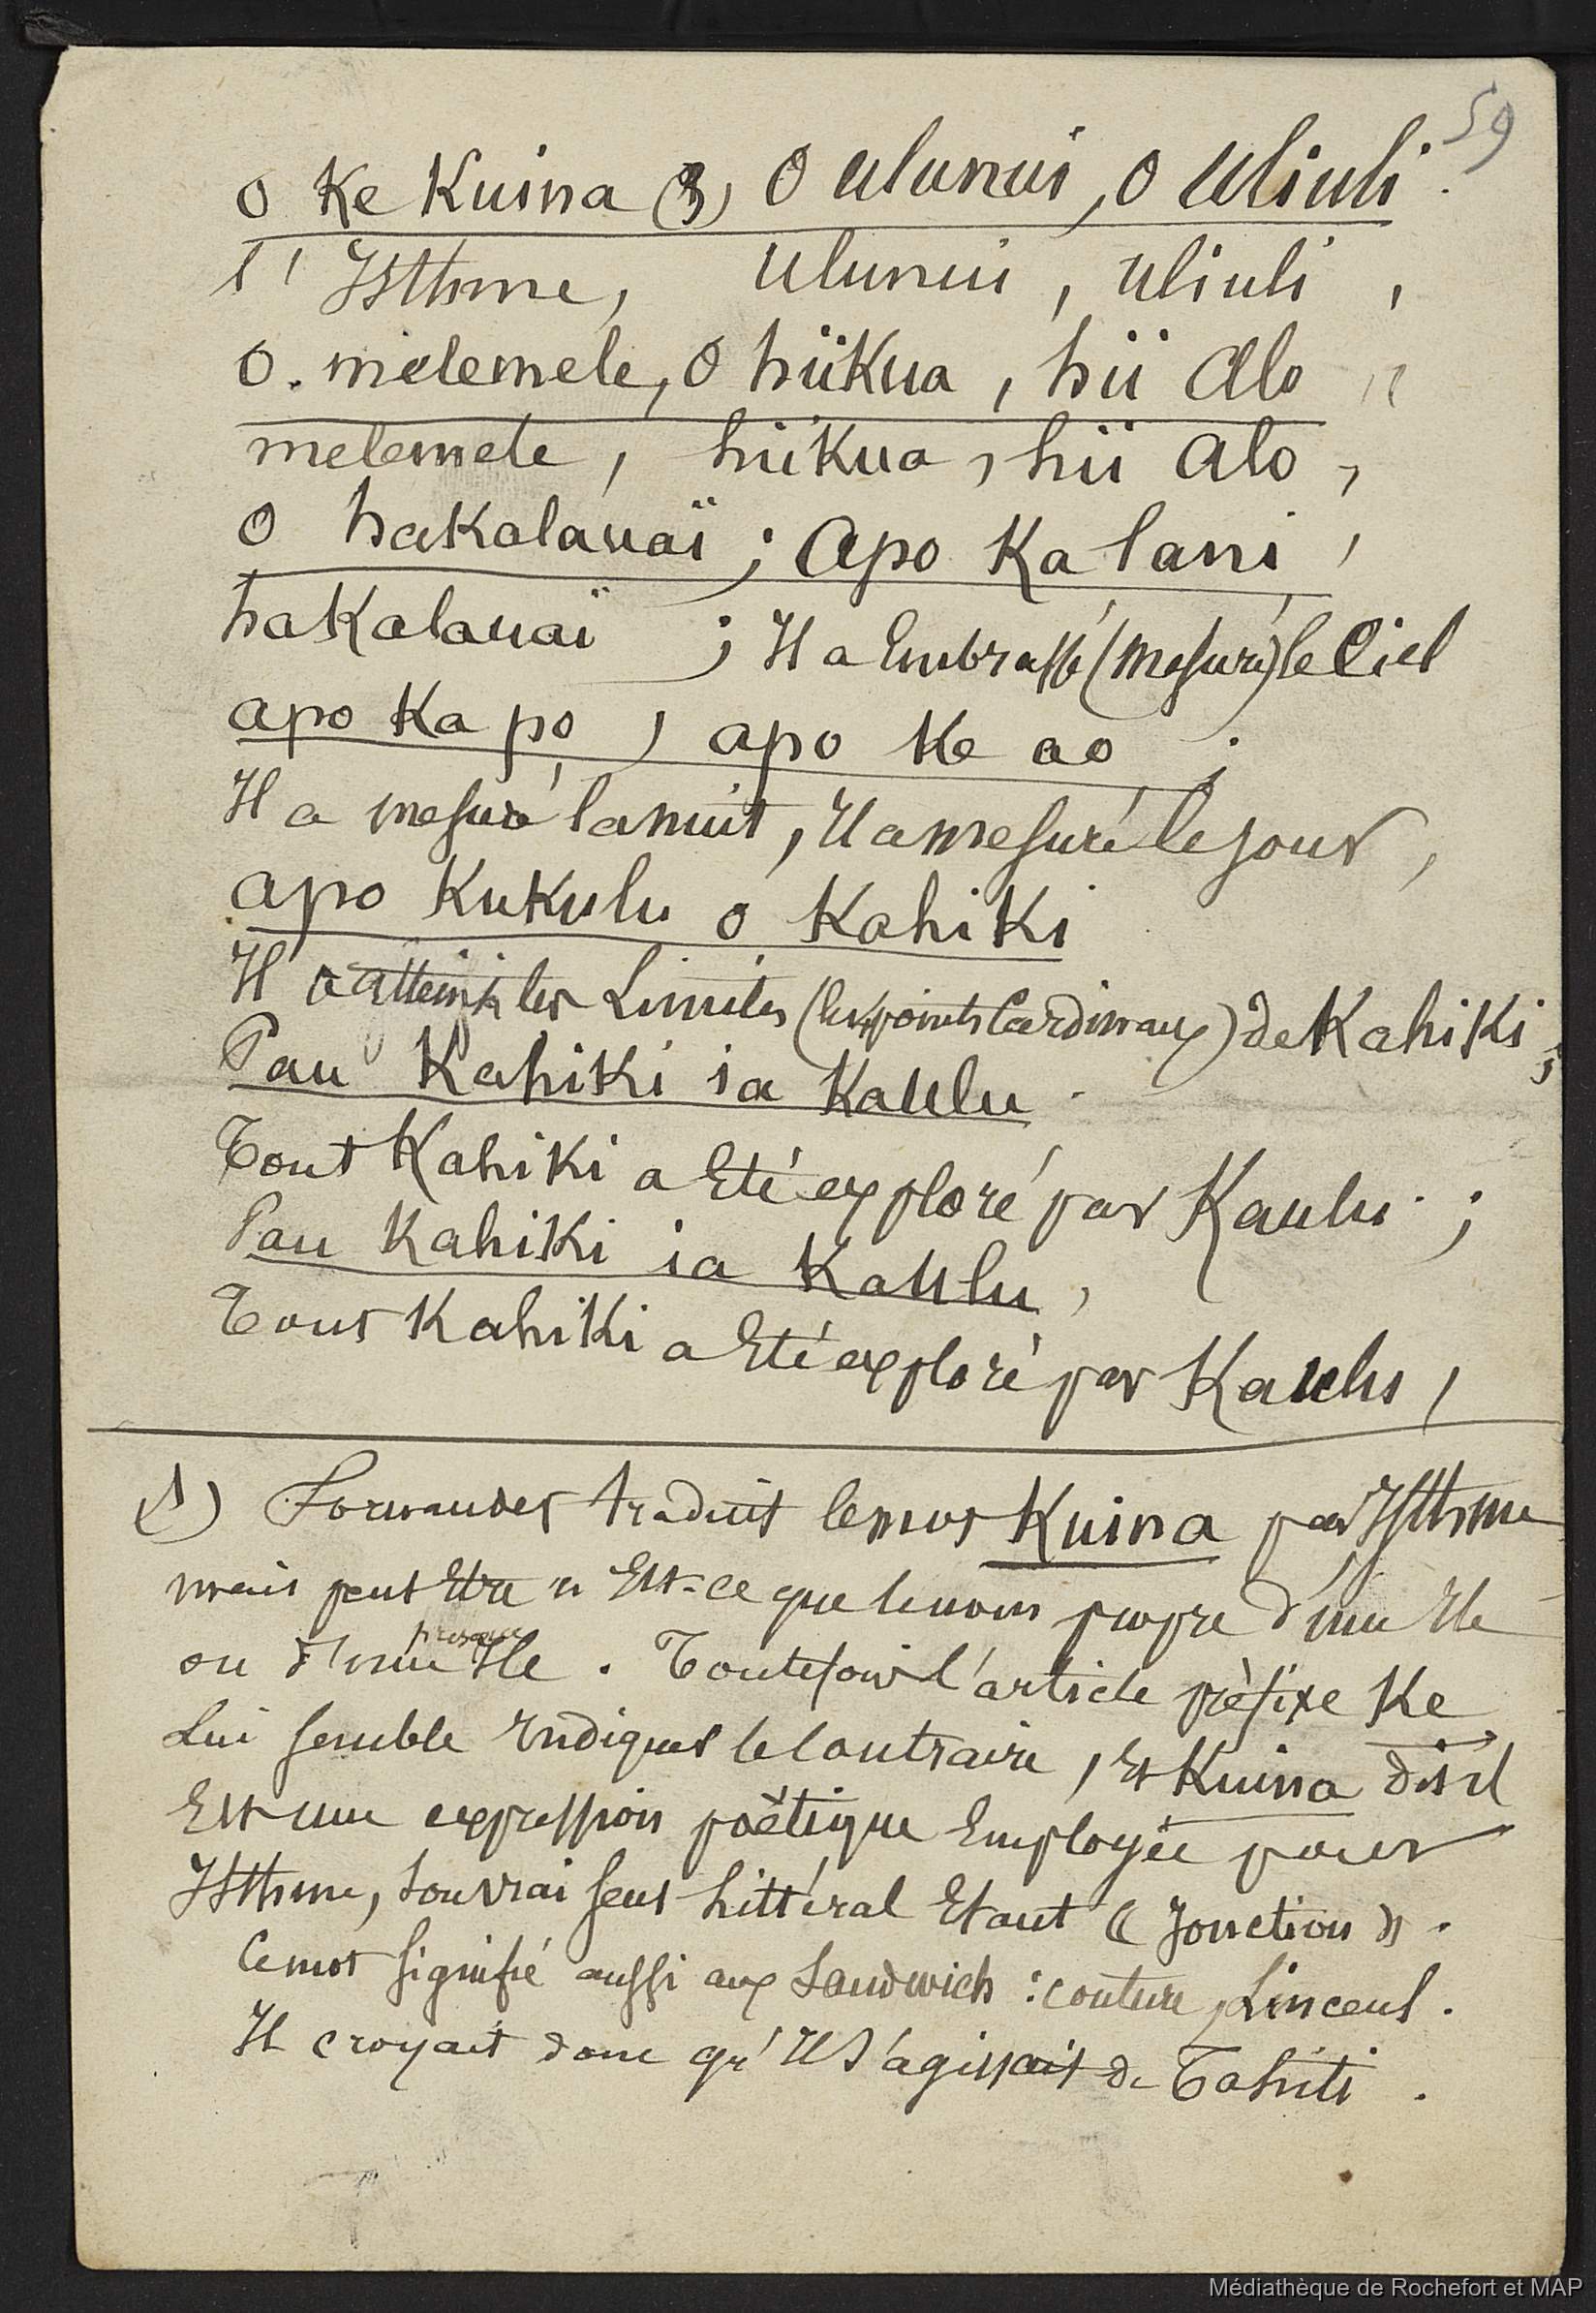 59
o Ke Kuina (3) O Ulunui, O Uliuli.
l'Isthme, Ulunui, Uliuli,
O. melemele, O hiikua, hii Alo,
melemele, hiikua, hii Alo,
O hakalauaï ; Apo Ka lani,
hakalauaï ; Il a Embrassé (mesuré) le Ciel
apo Ka po, apo Ke ao ;
Il a mesuré la nuit, Il a mesuré le jour,
apo Kukulu o Kahiki
Il a atteint les Limites (les points Cardinaux) de Kahiki ;
Pau Kahiki ia Kaulu.
Tout Kahiki a Eté exploré par Kaulu ;
Pau Kahiki ia Kaulu,
Tout Kahiki a Eté exploré par Kaulu,
Fornander traduit le mot Kuina par Isthme
mais peut Etre n'Est-ce que le nom propre d'une Ile
ou d'une presqu'Ile. Toutefois l'article préfixe Ke
Lui semble Indiquer le Contraire, Et Kuina dit-il
Est une expression poëtique Employée pour
Isthme, son vrai sens Littéral Etant « Jonction ».
Ce mot signifie aussi aux Sandwich : couture, Linceul.
Il croyait donc qu'Il S'agissait de Tahiti.
Médiathèque de Rochefort et MAP